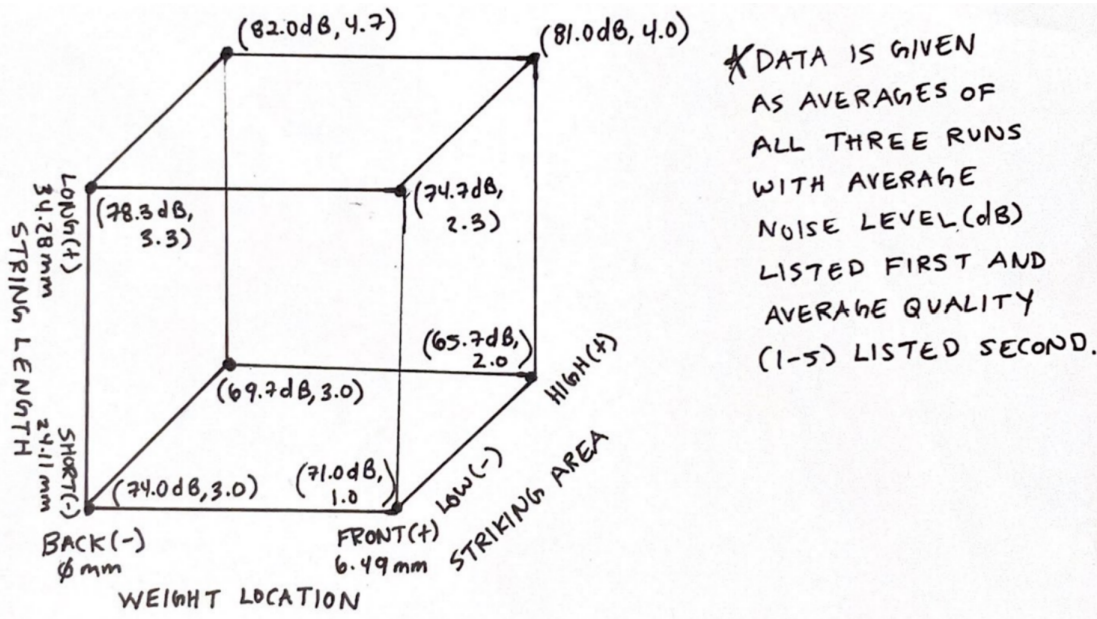 (82.0dB, 4.7)
(81.0dB, 4.0)
(78.3dB,
3.3)
(74.7dB,
2.3)
(65.7dB,
2.0
(69.7dB, 3.0)
(74.0dB, 3.0)
(71.0dB,
1.0
LONG(+)
34.28mm
STRING LENGTH
SHORT(-)
24.11mm
BACK(-)
0mm
FRONT(+)
6.49mm
WEIGHT LOCATION
LOW(-)
HIGH(+)
STRIKING AREA
*DATA IS GIVEN
AS AVERAGES OF
ALL THREE RUNS
WITH AVERAGE
NOISE LEVEL (dB)
LISTED FIRST AND
AVERAGE QUALITY
(1-5) LISTED SECOND.